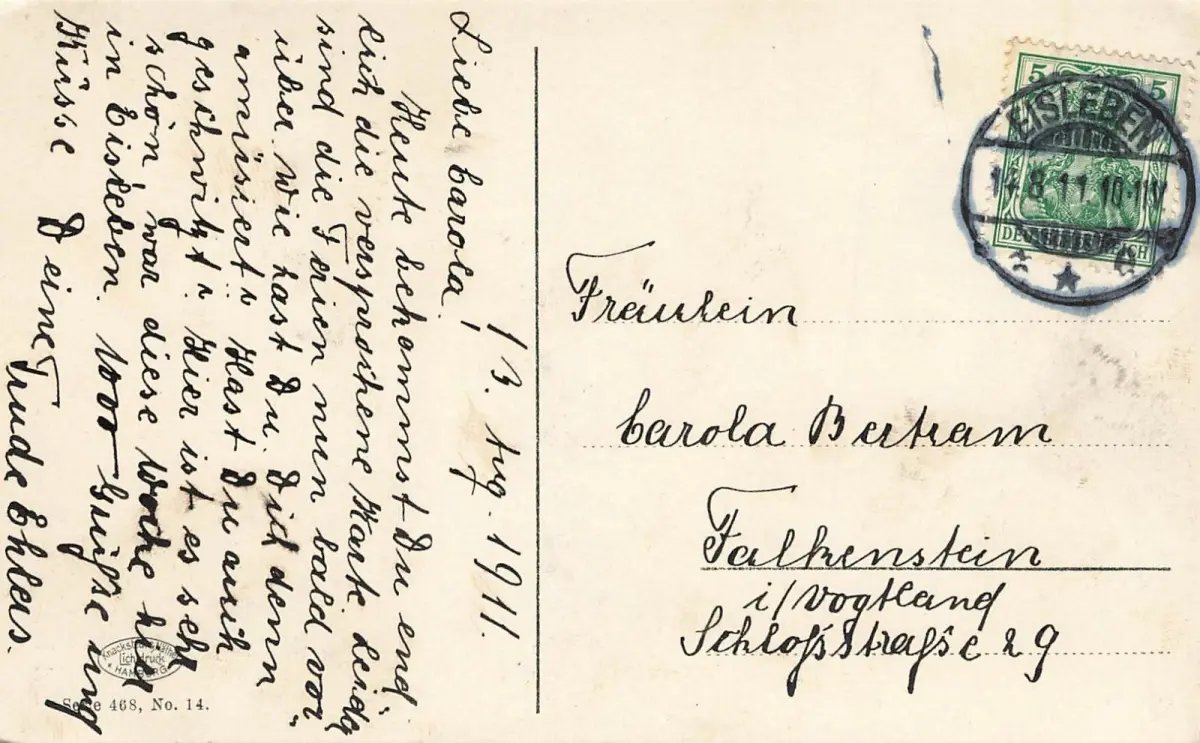 13. Aug. 1911.
Liebe Carola!
Heute bekommst Du end
lich die versprochene Karte. Leider
sind die Ferien nun bald vor
über. Wie hast Du Dich denn
amüsiert? Hast Du auch
geschwitzt? Hier ist es sehr
schön, war diese Woche hier
in Eisleben. 1000 Grüße und
Küsse Deine Trude Ehlers.
Knackstedt & Näther
Lichtdruck
HAMBURG
Serie 468, No. 14.
5 5
DEUTSCHES REICH
EISLEBEN
14.8.11.10-11V
Fräulein
Carola Bertram
Falkenstein
i/Vogtland
Schloßstraße 29